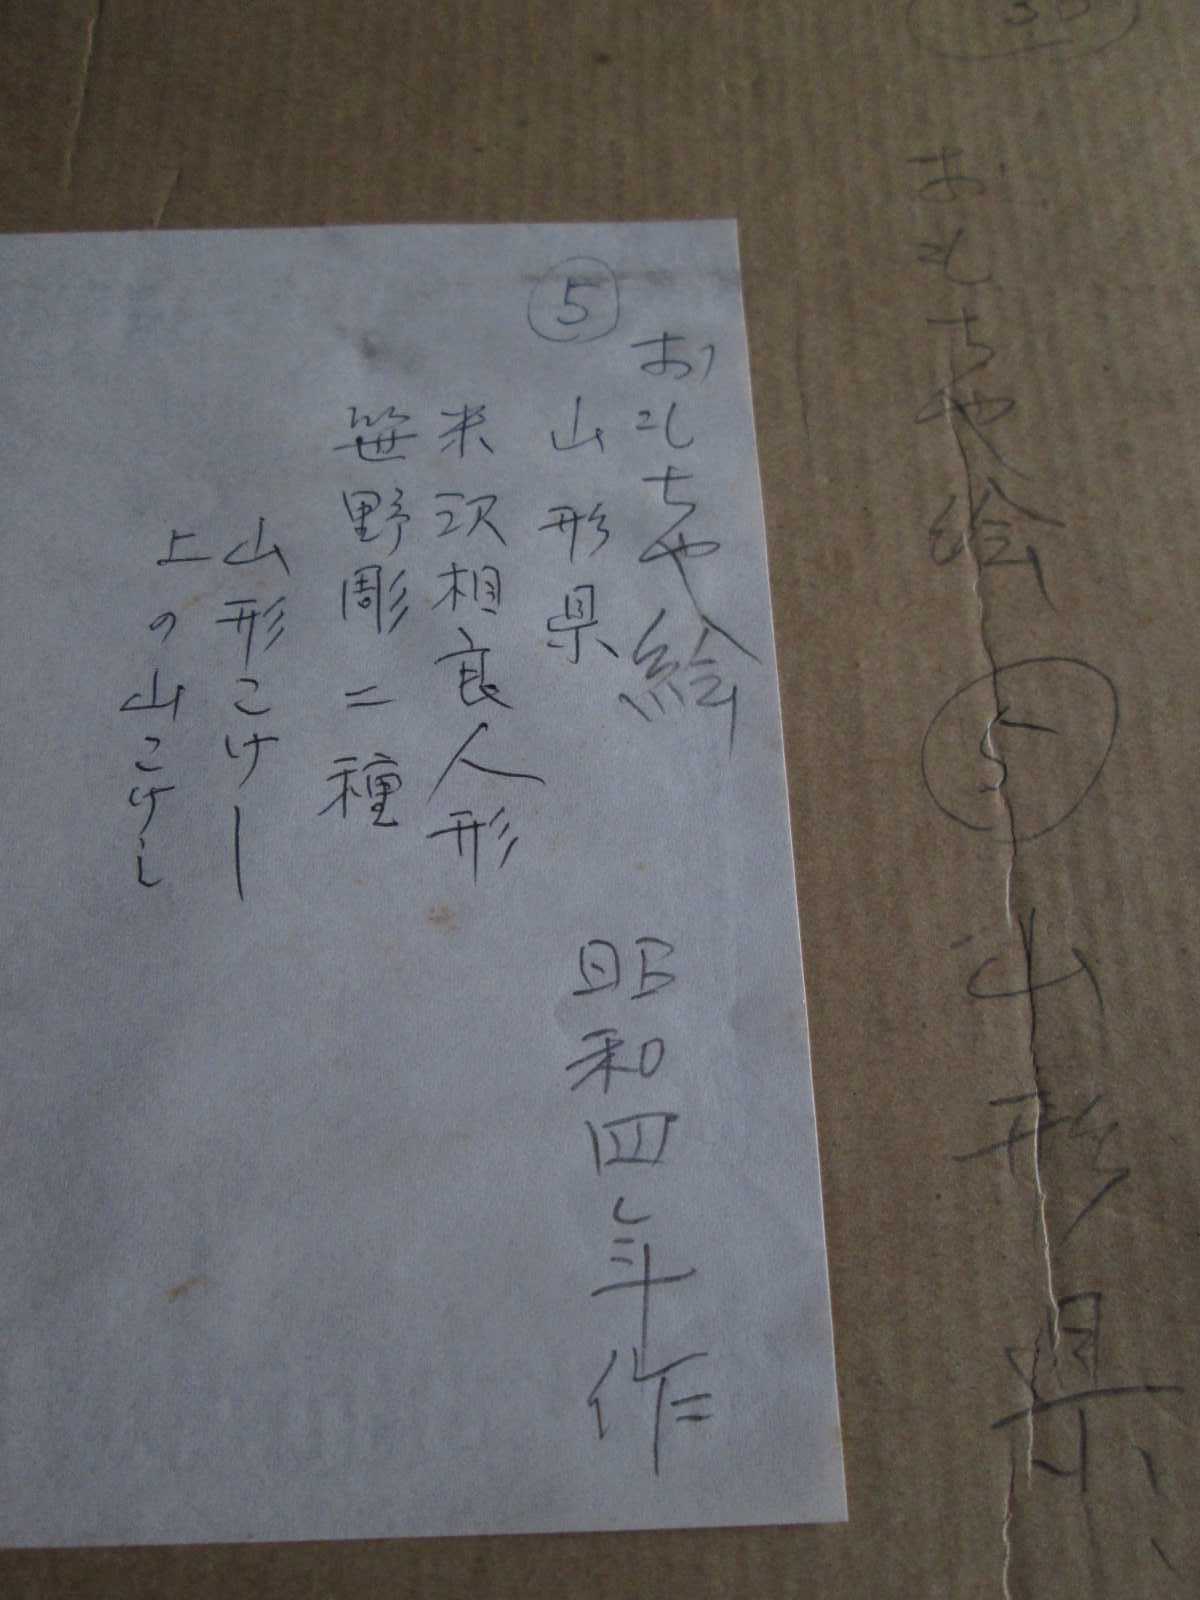 おもちや絵 ⑤ 山形県
おもちや絵 昭和四年作
⑤ 山形県
米沢相良人形
笹野彫二種
山形こけし
上の山こけし